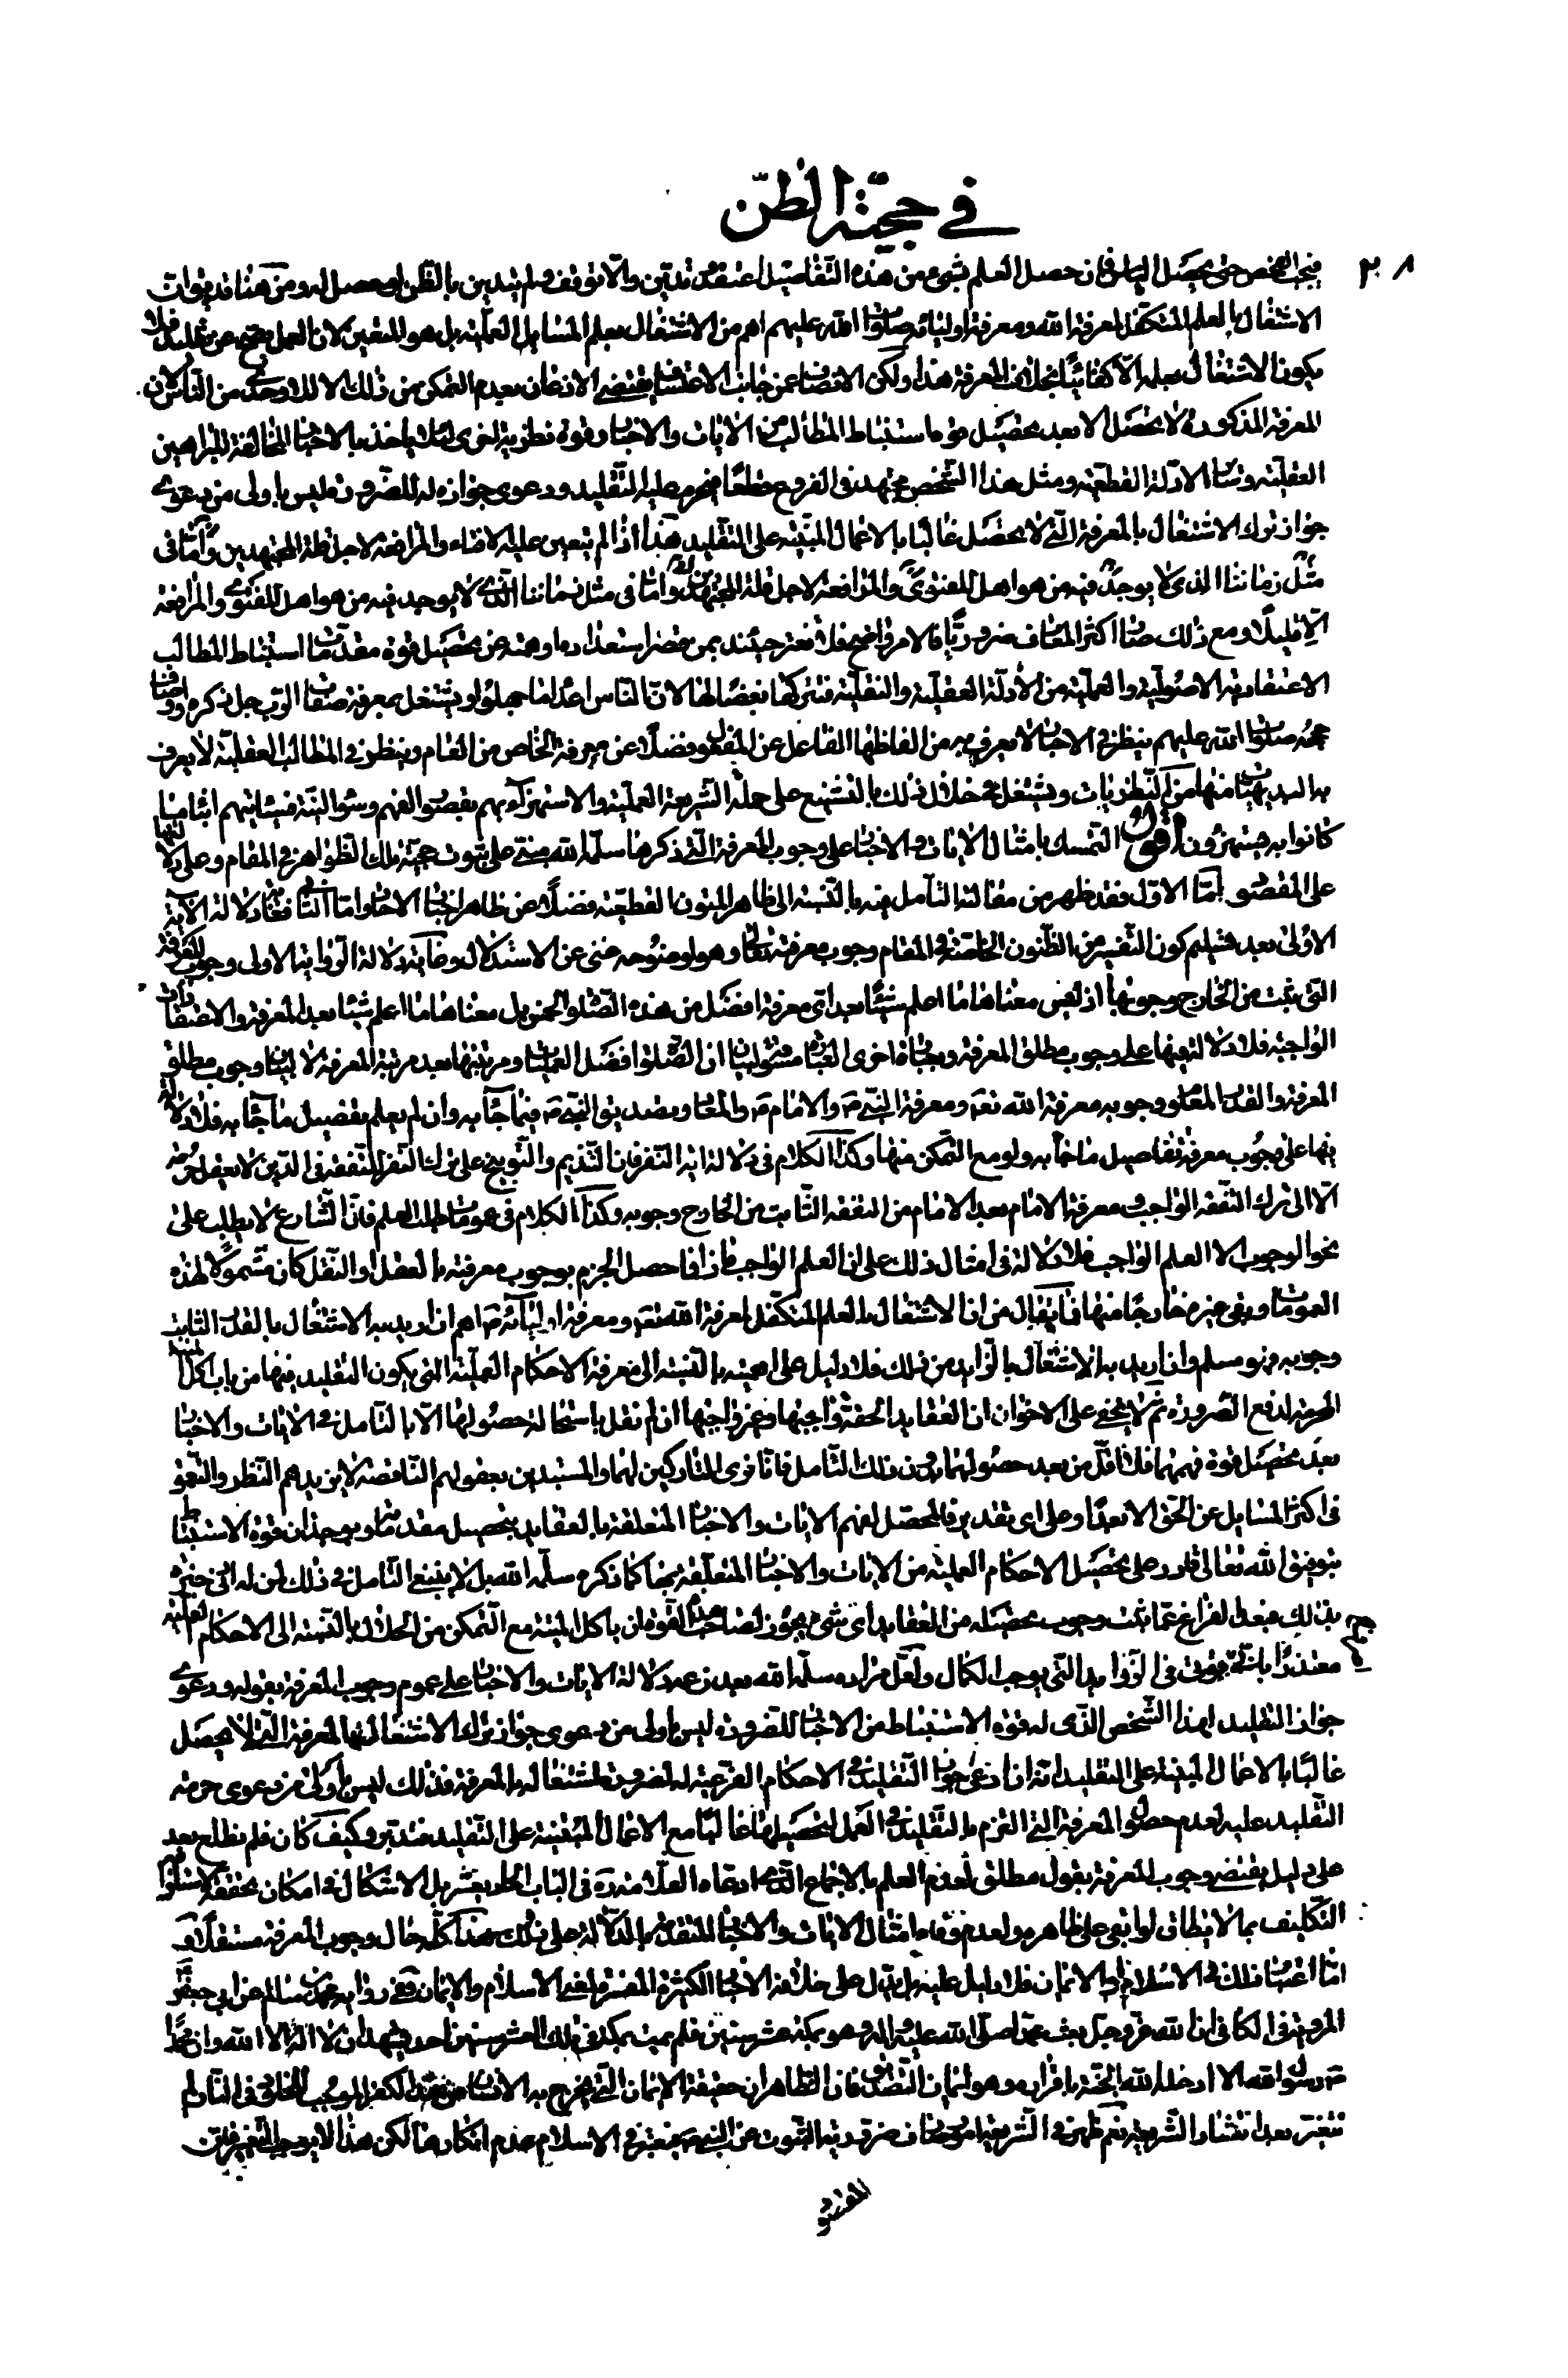 في حجيّة الظنّ
٢٠٨
فيجب الفحص حتى يحصل الياس فان حصل العلم بشيء من هذه التفاصيل اعتقد وتديّن والّا توقف ولم يتديّن بالظن لو حصل له ومن هنا قد يقال ان
الاشتغال بالعلم المتكفل لمعرفة الله ومعرفة اوليائه صلوات الله عليهم اهم من الاشتغال بعلم المسايل العلمية بل هو المتعين لان العمل يصح عن تقليد فلا
يكون الاشتغال بعلمه الّا كفائيّا بخلاف المعرفة هذا ولكن الانصاف عن جانب الاعتساف يقتضى الاذعان بعدم التمكن من ذلك الا للاوحدى من الناس لان
المعرفة المذكورة لا يحصل الا بعد تحصيل قوة استنباط المطالب من الايات والاخبار وقوة نظرية اخرى لئلا ياخذ بالاخبار المخالفة للبراهين
العقلية ومثل هذا الشخص مجتهد في الفروع قطعا فيحرم عليه التقليد ودعوى جوازه له للضرورة ليس باولى من دعوى
جواز ترك الاشتغال بالمعرفة التى لا يحصل غالبا بالاعمال المبنية على التقليد هذا اذا لم يتعين عليه الافتاء والمرافعة لاجل قلة المجتهدين وامّا في
مثل زماننا الذى لا يوجد فيه من هو اهل للفتوى والمرافعة لاجل قلة المجتهدين وامّا في مثل زماننا الذى لا يوجد فيه من هو اهل للفتوى والمرافعة
الّا قليلا ومع ذلك صار اكثر المعارف ضروريّا فالامر واضح فلا تغتر حينئذ بمن قصر استعداده او همته عن تحصيل قوة مقدمات استنباط المطالب
الاعتقادية الاصولية والعملية من الادلة العقلية والنقلية فيتركها بغضا لها لان الناس اعداء ما جهلوا ويشتغل بمعرفة صفات الرب جل ذكره واوصاف
حججه صلوات الله عليهم ينظر في الاخبار لا يعرف به من الفاظها الفاعل عن المفعول فضلا عن معرفة الخاص من العام وينظر في المطالب العقلية لا يعرف
به البديهيات منها من النظريات ويشتغل في خلال ذلك بالتشنيع على حملة الشريعة العملية والاستهزاء بهم بقصور الفهم وسوء النية فسياتيهم انباء ما
كانوا به يستهزؤن اقول التمسك بامثال الايات والاخبار على وجوب المعرفة التى ذكرها سلمه الله مبتنى على ثبوت حجية تلك الظواهر في المقام وعلى دلالتها
على المقصود امّا الاول فقد ظهر من مقالته التامل فيه بالنسبة الى ظاهر المتون القطعية فضلا عن ظاهر اخبار الاحاد وامّا الثانى دلالة الاية
الاولى بعد تسليم كون التفسير من الظنون الخاصة في المقام وجوب معرفته تعالى وهو لوضوحه غنى عن الاستدلال وغاية دلالة الرواية الاولى وجوب المعرفة
التى ثبت من الخارج وجوبها اذ ليس معناها ما اعلم شيئا بعد اىّ معرفة افضل من هذه الصلوة الخمس بل معناها ما اعلم شيئا بعد المعرفة والاعتقادات
الواجبة فلا دلالة فيها على وجوب مطلق المعرفة وبعبارة اخرى العبارة مسوقة لبيان ان الصلوة افضل العمليات ومرتبتها بعد مرتبة المعرفة لا لبيان وجوب مطلق
المعرفة والقدر المعلوم وجوبه معرفة الله تعم ومعرفة النبى ص والامام ع والمعاد وتصديق النبى ص فيما جاء به وان لم يعلم بتفصيل ما جاء به فلا دلالة
فيها على وجوب معرفة تفاصيل ما جاء به ولو مع التمكن منها وكذا الكلام في دلالة اية النفر فان التنديم والتوبيخ على ترك النفر للتفقه في الدين لا يعقل
الّا الى ترك التفقه الواجب ومعرفة الامام بعد الامام من التفقه الثابت من الخارج وجوبه وكذا الكلام في عمومات طلب العلم فان الشارع لا يطلب على
نحو الوجوب الا العلم الواجب فلا دلالة في امثال ذلك على ان العلم الواجب ماذا فاذا حصل الجزم بوجوب معرفته بالعقل او النقل كان مشمولا لهذه
العمومات وبقى غيره خارجا منها فما يقال من ان الاشتغال بالعلم المتكفل لمعرفة الله تعم ومعرفة اوليائه ع اهم ان اريد به الاشتغال بالقدر الثابت
وجوبه فهو مسلم وان اريد به الاشتغال بالزايد من ذلك فلا دليل على اهميته بالنسبة الى معرفة الاحكام العملية التى يكون التقليد فيها من باب اكل الميتة
المحرمة لدفع الضرورة ثم لا يخفى على الاخوان ان العقايد الحقة واجبها وغير واجبها ان لم نقل باستحالة حصولها الّا بالتامل في الايات والاخبار
بعد تحصيل قوة فهمها فلا اقل من بعد حصولها بدون ذلك التامل فانا نرى التاركين لهما والمستبدين بعقولهم الناقصة لا يزيدهم النظر والتعمق
في اكثر المسايل عن الحق الا بعدا وعلى اى تقدير فالمحصل لفهم الايات والاخبار المتعلقة بالعقايد بتحصيل مقدماته وبوجدان قوة الاستنباط
بتوفيق الله تعالى قادر على تحصيل الاحكام العملية من الايات والاخبار المتعلقة بها كما ذكره سلمه الله بل لا ينفع التامل في ذلك لمن له ادنى خبرة
بذلك فبعد الفراغ عما ثبت وجوب تحصيله من العقايد اى شىء يجوز لصاحب هذه القوة ان ياكل الميتة مع التمكن من الحلال بالنسبة الى الاحكام العملية
معتذرا بانه يفوت في الزوايد التى يوجب الكمال ولعل مراده سلمه الله بعد زعم دلالة الايات والاخبار على عموم وجوب المعرفة بقوله ودعوى
جواز التقليد لهذا الشخص الذى له قوة الاستنباط من الاخبار للضرورة ليس باولى من دعوى جواز ترك الاشتغال بالمعرفة التى لا يحصل
غالبا بالاعمال المبنية على التقليد انه ان ادعى جواز التقليد في الاحكام الفرعية له لضرورة اشتغاله بالمعرفة فذلك ليس باولى من دعوى حرمة
التقليد عليه لعدم حصول المعرفة التى التزم بالتقليد في العمل لتحصيلها غالبا مع الاعمال المبتنية على التقليد فتدبر وكيف كان فلم نطلع بعد
على دليل يقتضى وجوب المعرفة بقول مطلق لعدم العلم بالاجماع الذى ادعاه العلامة ره في الباب الحاديعشر بل الاشكال في امكان تحققه لاستلزامه
التكليف بما لا يطاق لو ابقى على ظاهره ولعدم وفاء امثال الايات والاخبار المتقدمة بالدلالة على ذلك هذا كله حال وجوب المعرفة مستقلا و
امّا اعتبار ذلك في الاسلام او الايمان فلا دليل عليه بل يدل على خلافه الاخبار الكثيرة المفسرة لمعنى الاسلام والايمان ففى رواية محمد بن سالم عن ابى جعفر ع
المروية في الكافي ان الله عز وجل بعث محمدا صلى الله عليه واله وهو بمكة عشر سنين فلم يمت بمكة في تلك العشر سنين احد يشهد ان لا اله الا الله وان محمدا
ص رسول الله الا ادخله الله الجنة باقراره وهو ايمان التصديق فان الظاهر ان حقيقة الايمان التى يخرج به الانسان من حد الكفر الموجب للخلود في النار لم
تتغير بعد انتشار الشريعة نعم ظهر في الشريعة امور صارت ضرورية الثبوت عن النبى ص فيعتبر في الاسلام عدم انكارها لكن هذا لا يوجب التغيير فان
المقصود